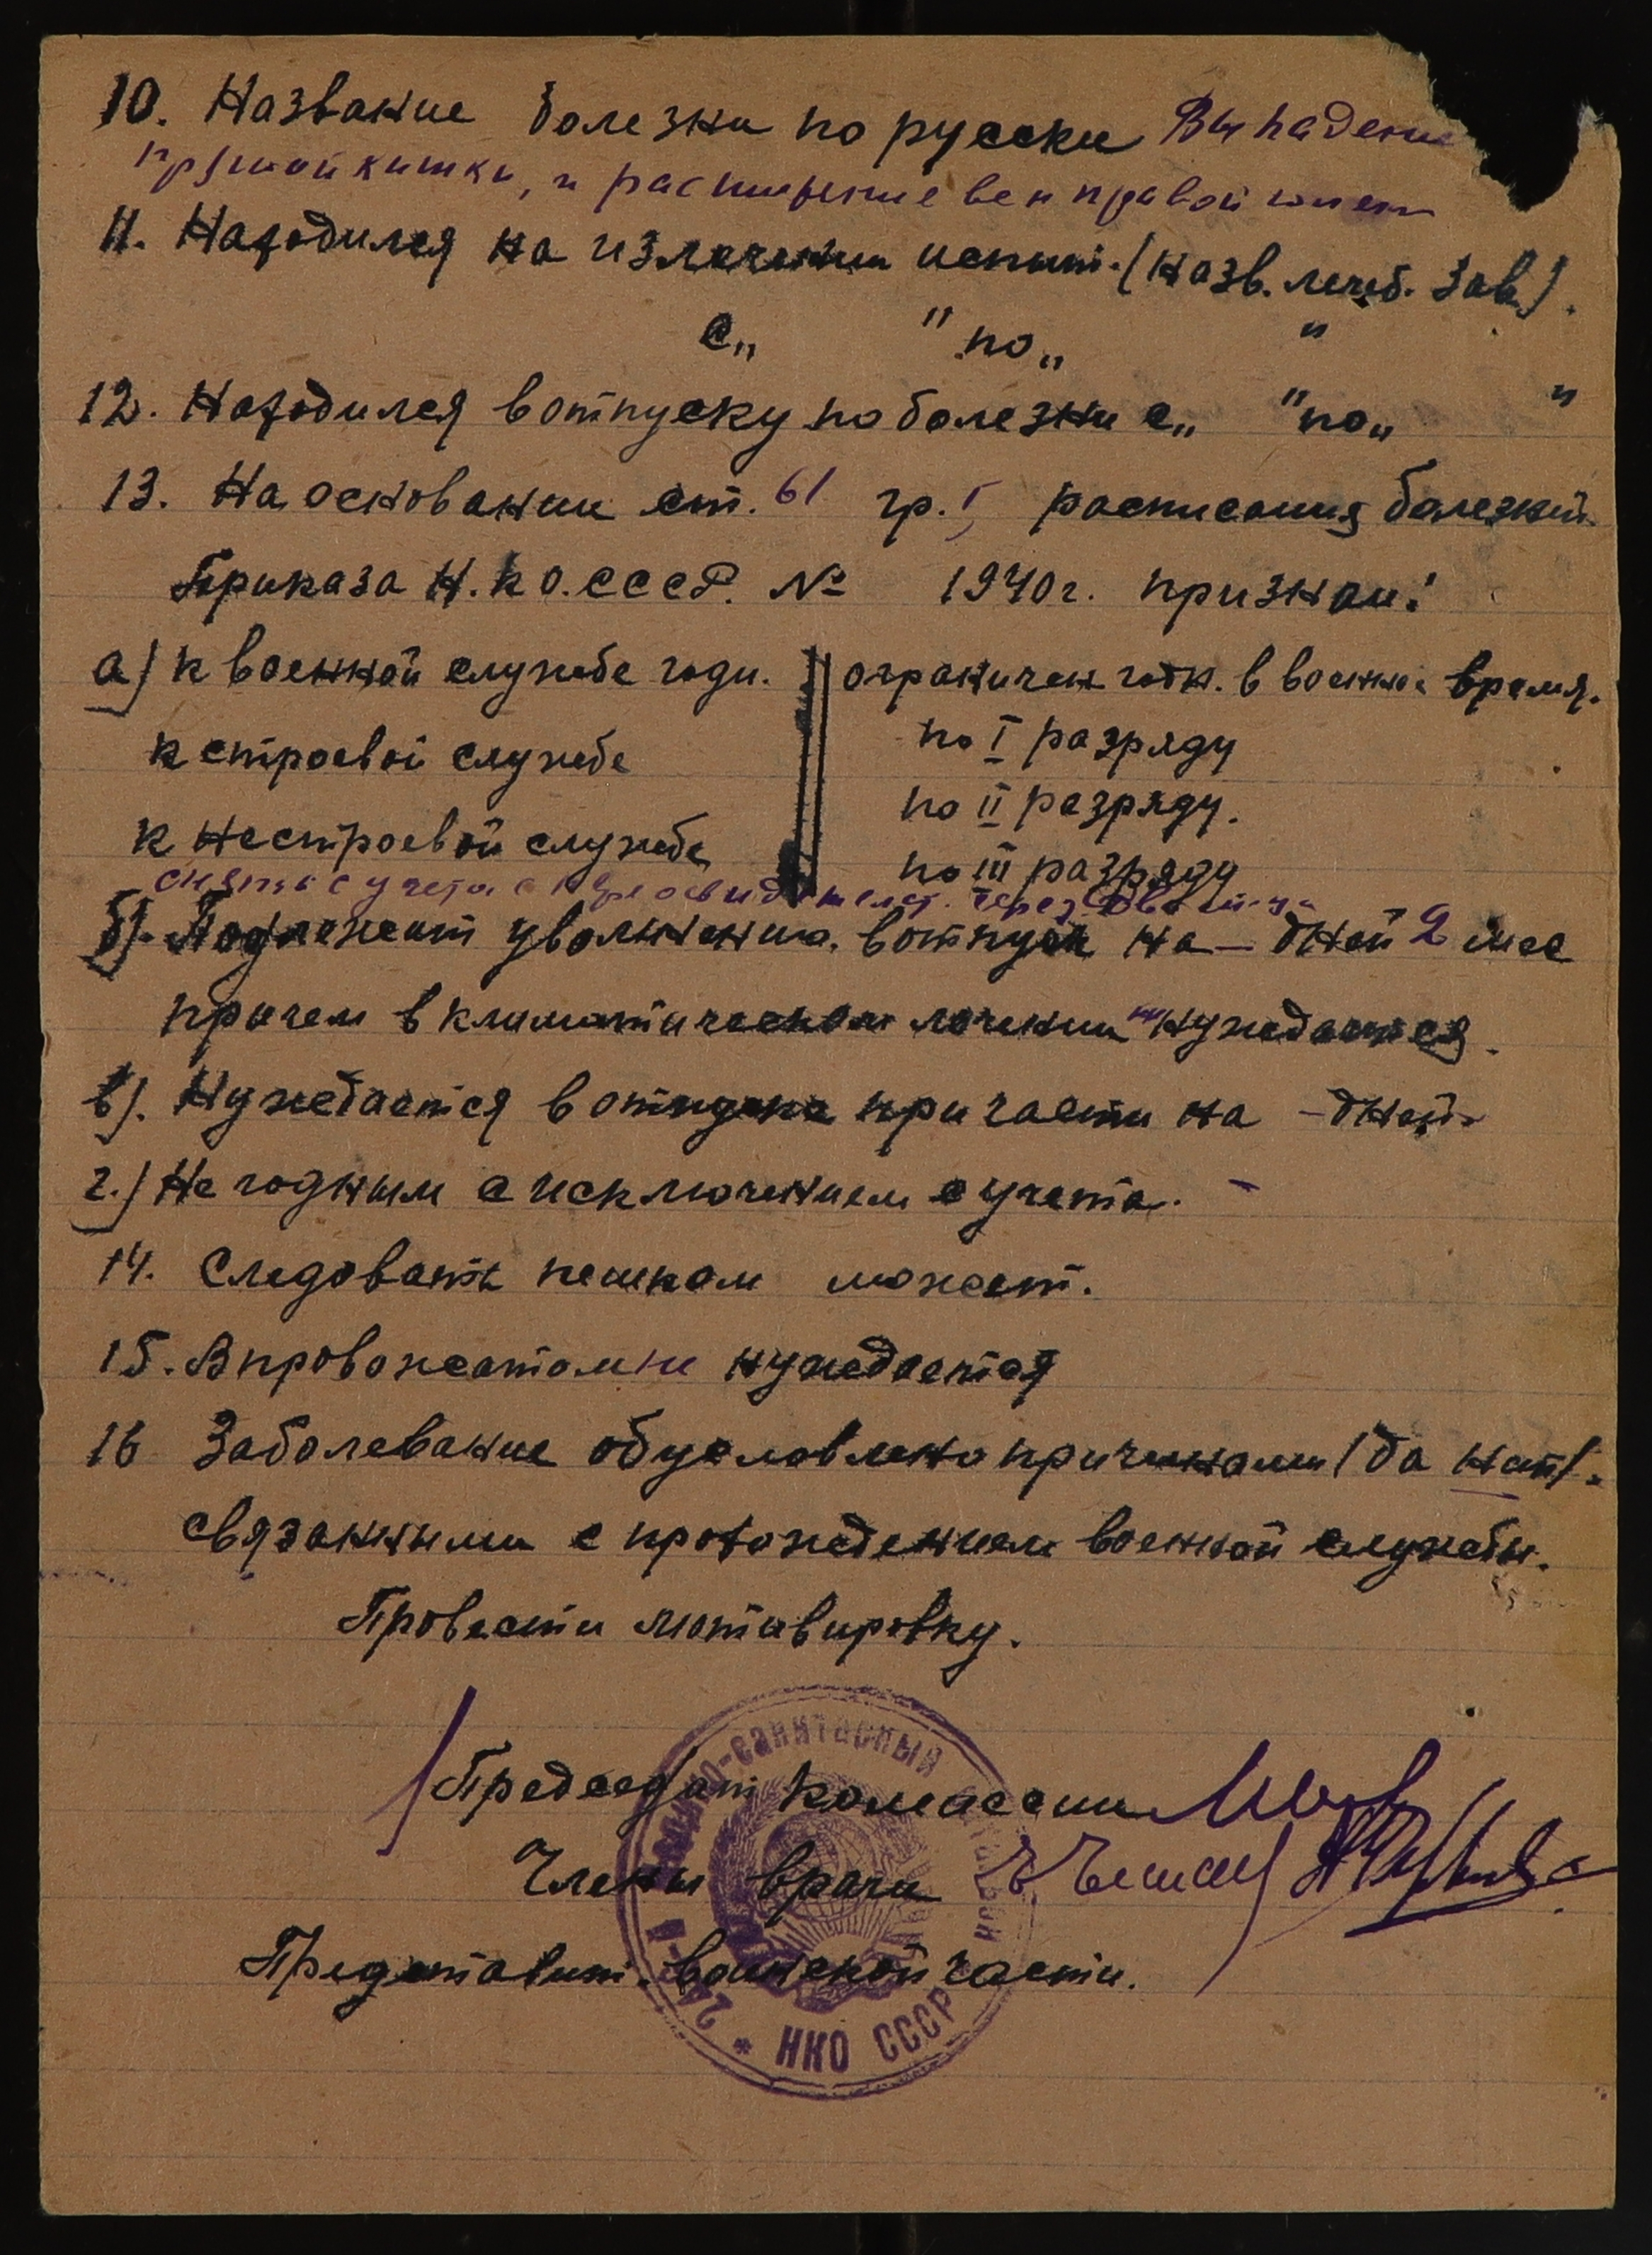 10. Название болезни по русски Выпадение
прямой кишки, и расширение вен правой голен
11. Находился на излечении испыт. (назв. лечеб. зав.).
с „ " по „ "
12. Находился в отпуску по болезни с „ " по „ "
13. На основании ст. 61 гр. I, расписания болезней
Приказа Н.К.О. СССР. № 1940г. признан:
а) к военной службе годн. ограничен годн. в военное время.
к строевой службе по I разряду
по II разряду.
к нестроевой службе по III разряду
снять с учета с переосвидетельст. через два м-ца
б). Подлежит увольнению в отпуск на — дней 2 мес
причем в климатическом лечении не нуждается.
в). Нуждается в отпуске при части на — дней
г.) Не годным с исключением с учета. -
14. Следовать пешком может.
15. В провожатом не нуждается
16 Заболевание обусловлено причинами (да нет).
связанными с прохождением военной службы.
Провести мотивировку.
Председат комиссии
Члены врачи
Представит. воинской части.
военно-санитарный
* НКО СССР